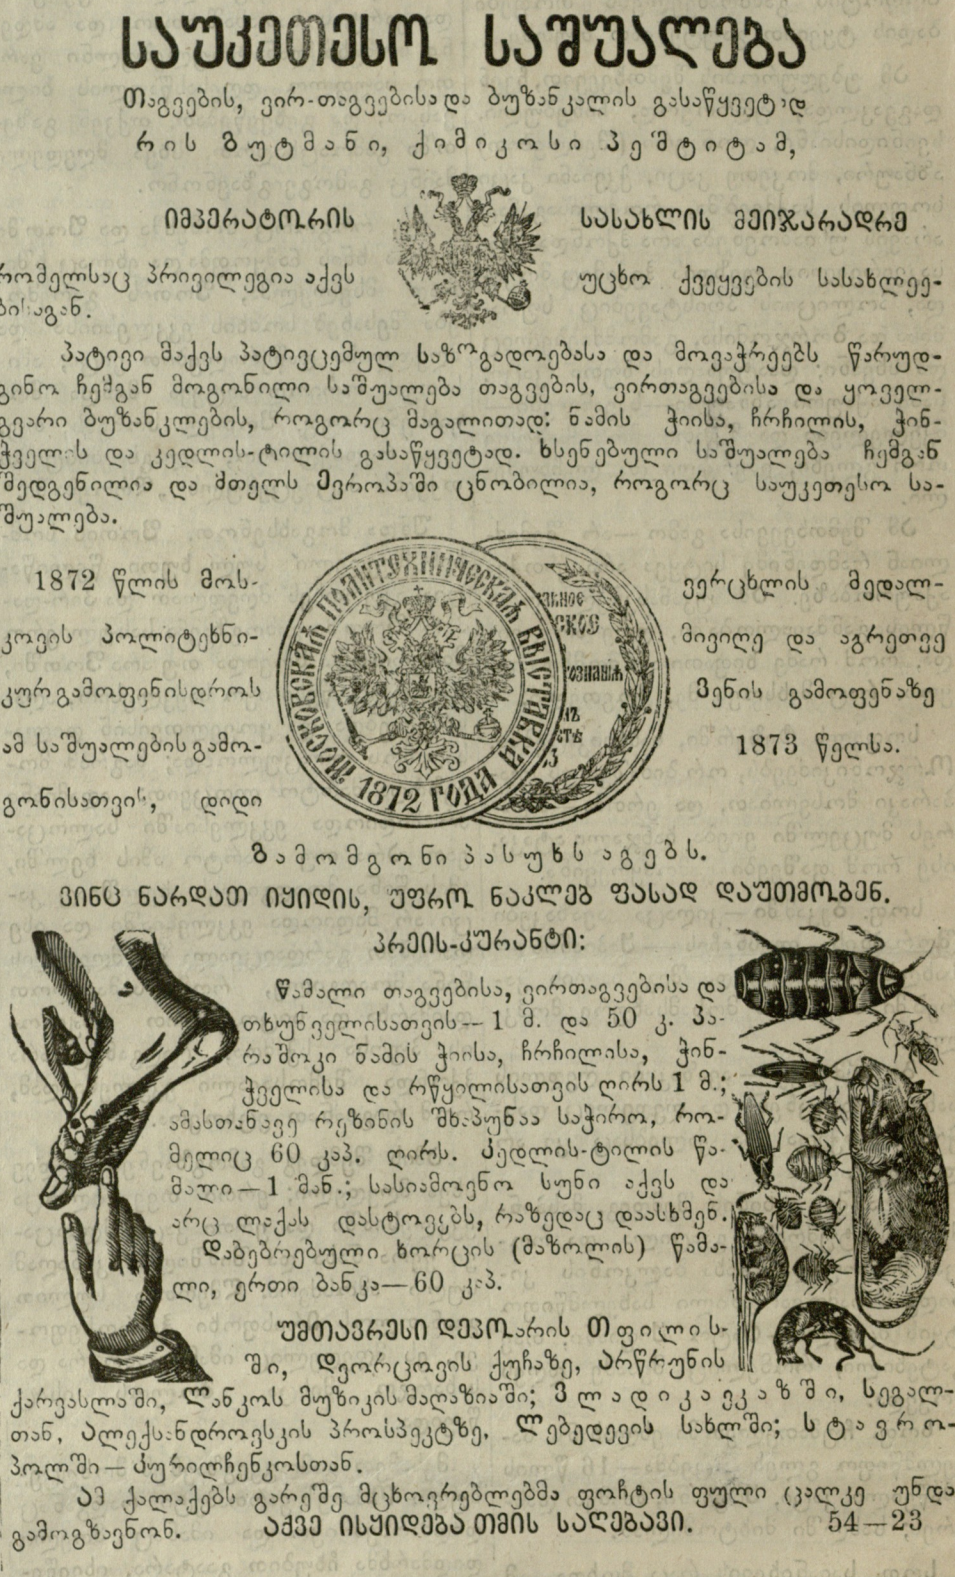 საუკეთესო საშუალება
თაგვების, ვირ-თაგვებისა და ბუზანკალის გასაწყვეტად
რის გუტმანი, ქიმიკოსი პეშტიტამ,
იმპერატორის სასახლის მეიჯარადრე
რომელსაც პრივილეგია აქვს უცხო ქვეყვების სასახლეე-
ბისაგან.
პატივი მაქვს პატივცემულ საზოგადოებასა და მოვაჭრეებს წარუდ-
გინო ჩემგან მოგონილი საშუალება თაგვების, ვირთაგვებისა და ყოველ-
გვარი ბუზანკლების, როგორც მაგალითად: ნამის ჭიისა, ჩრჩილის, ჭინ-
ჭველის და კედლის-ტილის გასაწყვეტად. ხსენებული საშუალება ჩემგან
შედგენილია და მთელს ევროპაში ცნობილია, როგორც საუკეთესო სა-
შუალება.
1872 წლის მოს-
კოვის პოლიტეხნი-
კურ გამოფენისდროს
ამ საშუალების გამო-
გონისათვის, დიდი
МОСКОВСКАЯ ПОЛИТЕХНИЧЕСКАЯ ВЫСТАВКА
1872 ГОДА
ვერცხლის მედალ-
მივიღე და აგრეთვე
ვენის გამოფენაზე
1873 წელსა.
გამომგონი პასუხს აგებს.
ვინც ნარდათ იყიდის, უფრო ნაკლებ ფასად დაუთმობენ.
პრეის-კურანტი:
წამალი თაგვებისა, ვირთაგვებისა და
თხუნველისათვის — 1 მ. და 50 კ. პა-
რაშოკი ნამის ჭიისა, ჩრჩილისა, ჭინ-
ჭველისა და რწყილისათვის ღირს 1 მ.;
ამასთანავე რეზინის შხაპუნაა საჭირო, რო-
მელიც 60 კაპ. ღირს. კედლის-ტილის წა-
მალი — 1 მან.; სასიამოვნო სუნი აქვს და
არც ლაქას დასტოვებს, რაზედაც დაასხმენ.
დაბებრებული ხორცის (მაზოლის) წამა-
ლი, ერთი ბანკა — 60 კაპ.
უმთავრესი დეპო არის თფილის-
ში, დვორცოვის ქუჩაზე, არწრუნის
ქარვასლაში, ლანკოს მუზიკის მაღაზიაში; ვლადიკავკაზში, სეგალ-
თან, ალექსანდროვსკის პროსპეკტზე, ლებედევის სახლში; სტავრო-
პოლში — კურილჩენკოსთან.
ამ ქალაქებს გარეშე მცხოვრებლებმა ფოჩტის ფული ცალკე უნდა
გამოგზავნონ. აქვე ისყიდება თმის საღებავი. 54—23